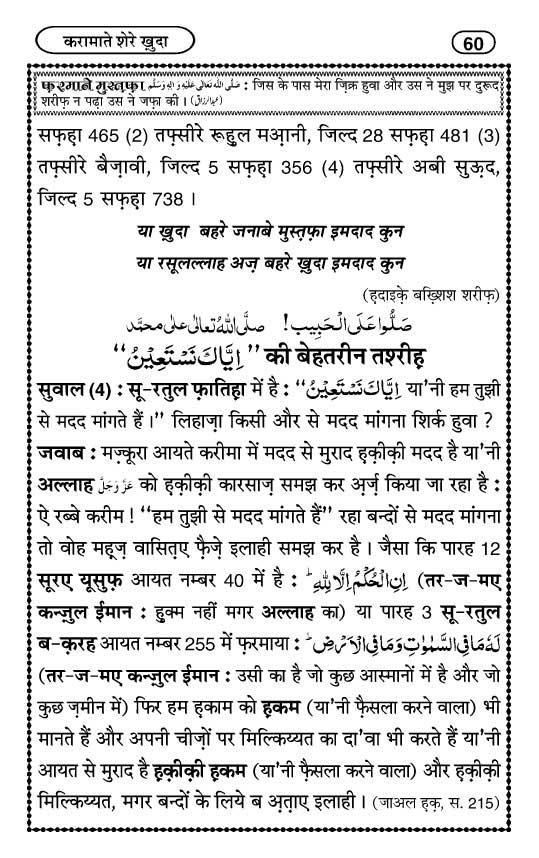 करामाते शेरे ख़ुदा
60
फ़रमाने मुस्तफ़ा صَلَّى اللهُ تَعَالٰى عَلَيْهِ وَاٰلِهٖ وَسَلَّم : जिस के पास मेरा ज़िक्र हुवा और उस ने मुझ पर दुरूद
शरीफ़ न पढ़ा उस ने जफ़ा की । (عبدالرزاق)
सफ़हा 465 (2) तफ़्सीरे रूहुल मआ़नी, जिल्द 28 सफ़हा 481 (3)
तफ़्सीरे बैज़ावी, जिल्द 5 सफ़हा 356 (4) तफ़्सीरे अबी सुऊ़द,
जिल्द 5 सफ़हा 738 ।
या ख़ुदा बहरे जनाबे मुस्तफ़ा इमदाद कुन
या रसूलल्लाह अज़ बहरे ख़ुदा इमदाद कुन
(ह़दाइके़ बख़्शिश शरीफ़)
صَلُّوْا عَلَى الْحَبِيْب! صلَّى اللهُ تعالىٰ على محمَّد
“اِيَّاكَ نَسْتَعِيْنُ” की बेहतरीन तश्रीह़
सुवाल (4) : सू-रतुल फ़ातिह़ा में है : “اِيَّاكَ نَسْتَعِيْنُ या'नी हम तुझी
से मदद मांगते हैं ।” लिहाज़ा किसी और से मदद मांगना शिर्क हुवा ?
जवाब : मज़्कूरा आयते करीमा में मदद से मुराद ह़क़ीक़ी मदद है या'नी
अल्लाह عَزَّوَجَلَّ को ह़क़ीक़ी कारसाज़ समझ कर अ़र्ज़ किया जा रहा है :
ऐ रब्बे करीम ! “हम तुझी से मदद मांगते हैं” रहा बन्दों से मदद मांगना
तो वोह मह़ूज़ वासित़ए फै़ज़े इलाही समझ कर है । जैसा कि पारह 12
सूरए यूसुफ़ आयत नम्बर 40 में है : اِنِ الْحُكْمُ اِلَّا لِلّٰهِ ؕ (तर-ज-मए
कन्ज़ुल ईमान : हुक्म नहीं मगर अल्लाह का) या पारह 3 सू-रतुल
ब-क़रह आयत नम्बर 255 में फ़रमाया : لَهٗ مَا فِي السَّمٰوٰتِ وَمَا فِي الْاَرْضِ ؕ
(तर-ज-मए कन्ज़ुल ईमान : उसी का है जो कुछ आस्मानों में है और जो
कुछ ज़मीन में) फिर हम ह़काम को ह़कम (या'नी फै़सला करने वाला) भी
मानते हैं और अपनी चीज़ों पर मिल्किय्यत का दा'वा भी करते हैं या'नी
आयत से मुराद है ह़क़ीक़ी ह़कम (या'नी फै़सला करने वाला) और ह़क़ीक़ी
मिल्किय्यत, मगर बन्दों के लिये ब अ़त़ाए इलाही । (जाअल ह़क़, स. 215)